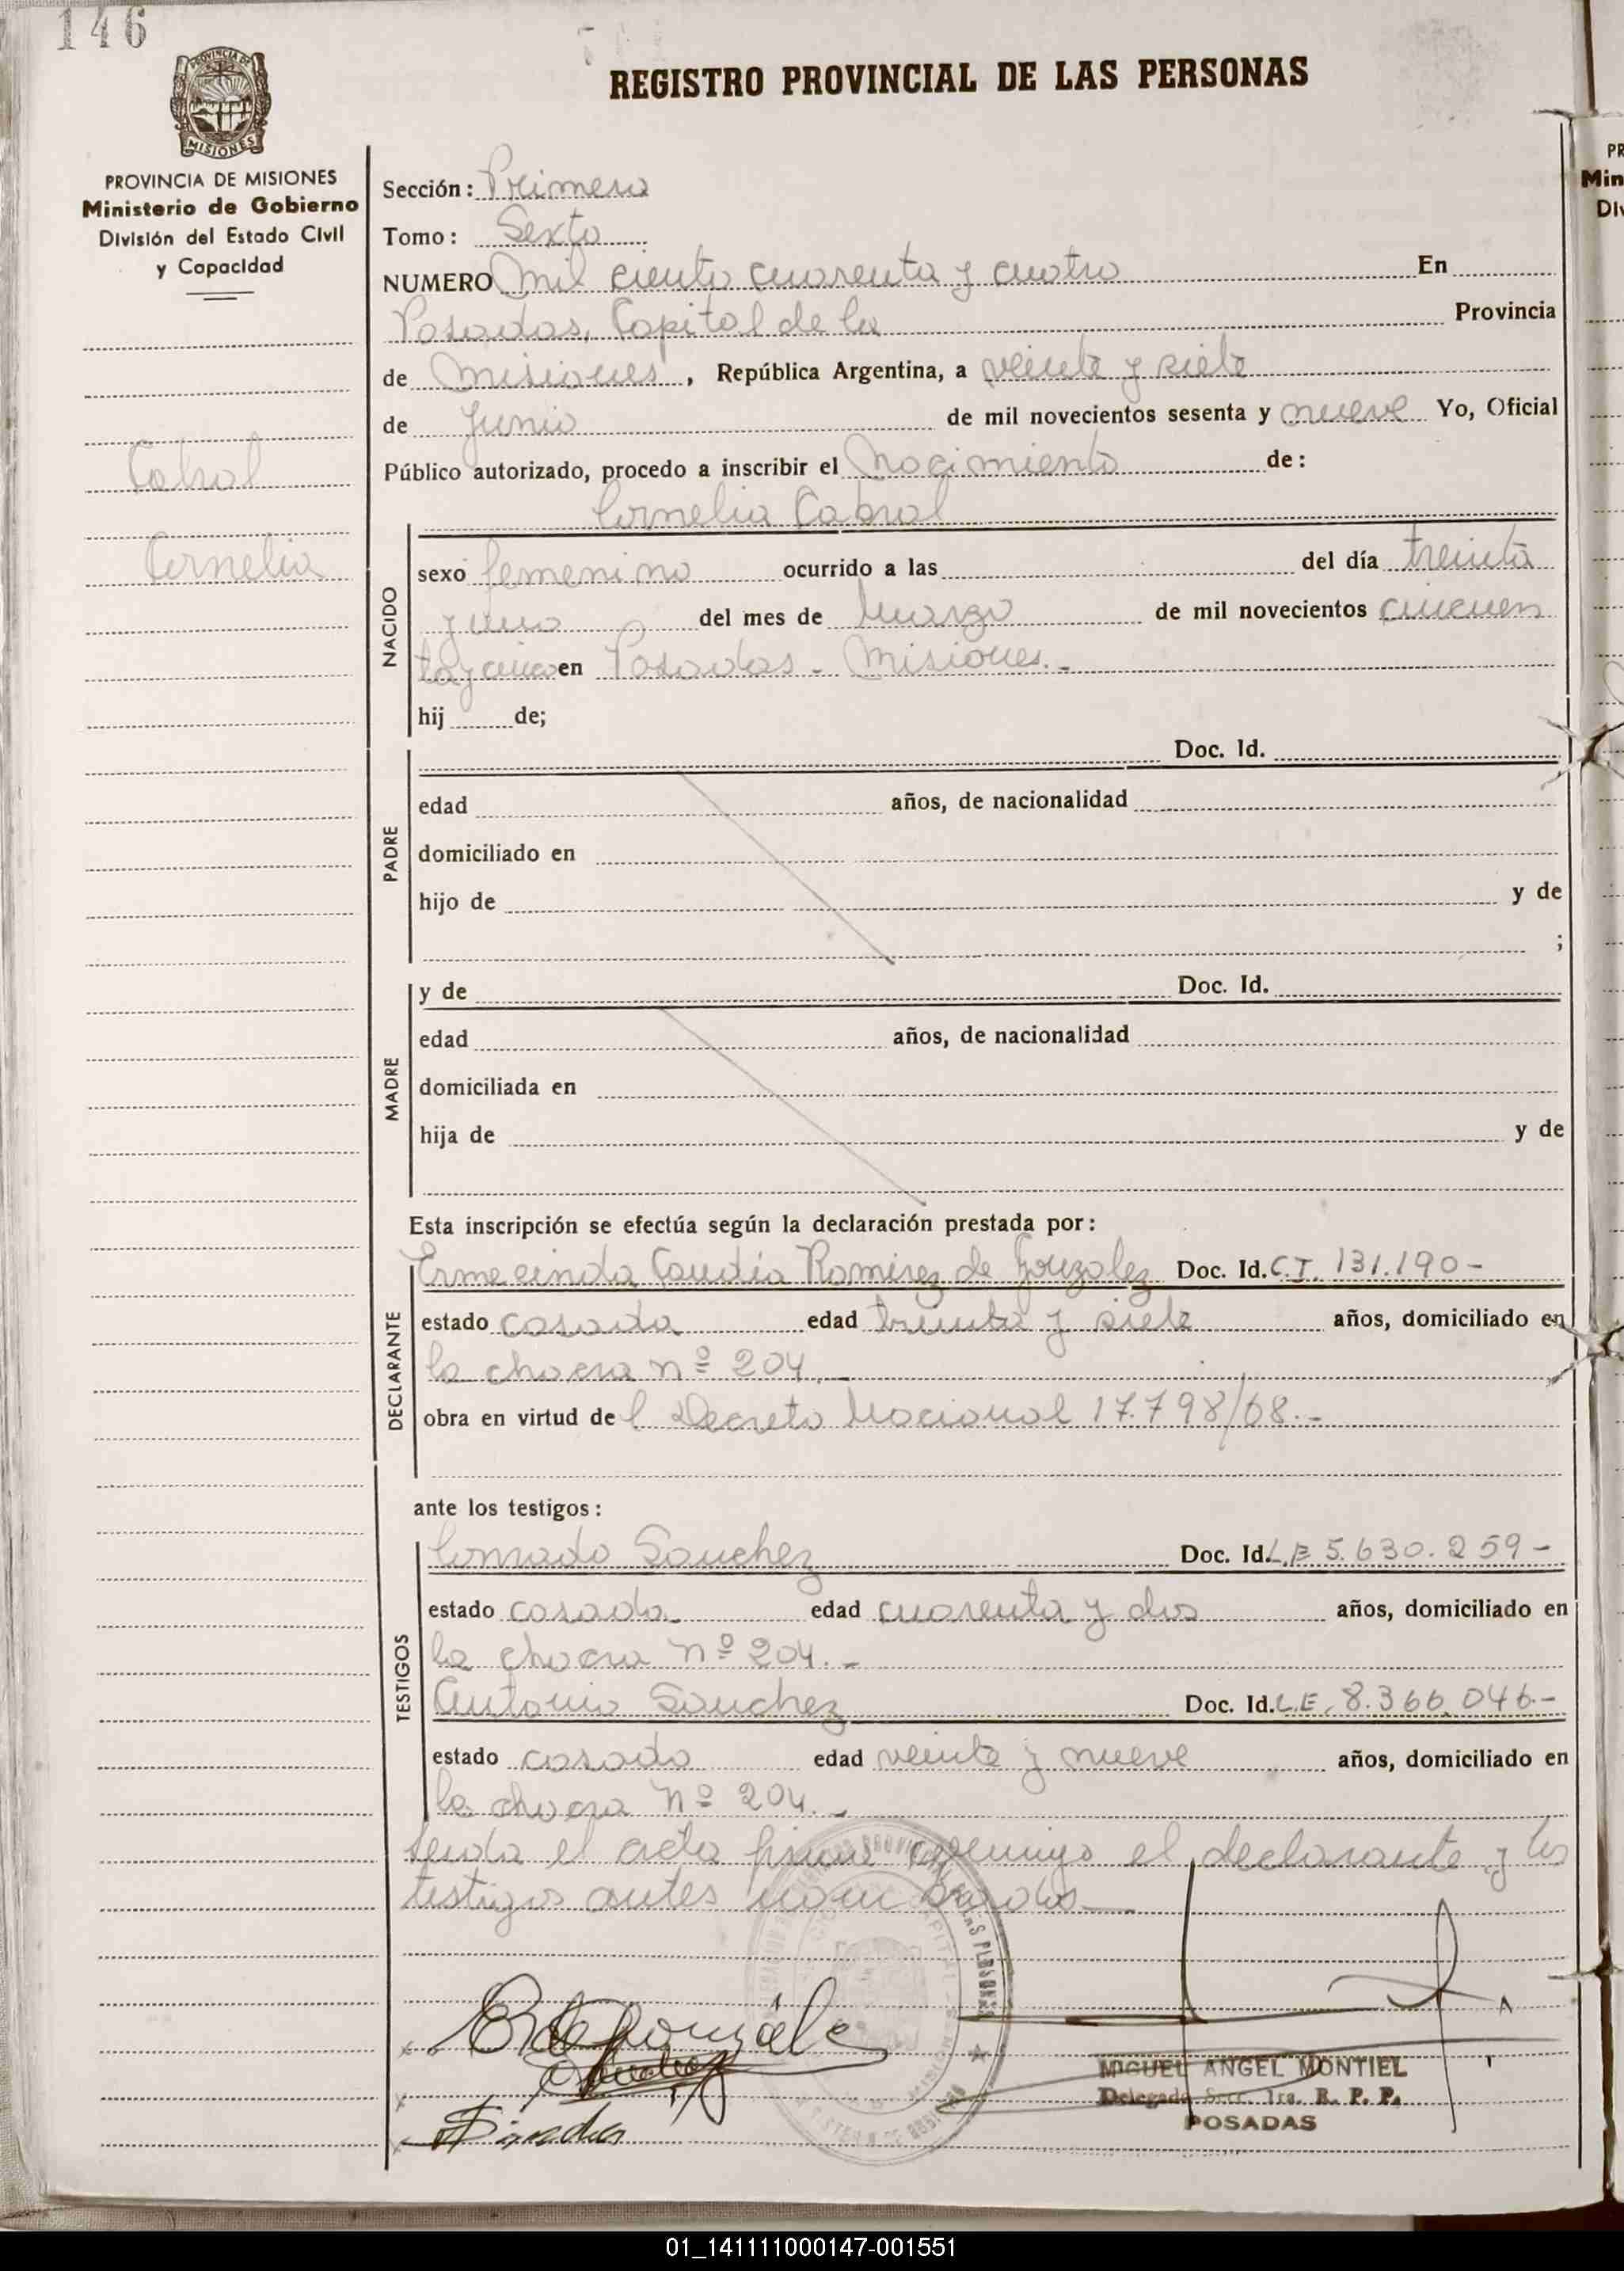 146
REGISTRO PROVINCIAL DE LAS PERSONAS
MISIONES
PROVINCIA DE MISIONES
Ministerio de Gobierno
División del Estado Civil
y Capacidad
Cabral
Cornelia
Sección: Primera
Tomo: Sexto
NUMERO mil ciento cuarenta y cuatro En
Posadas, Capital de la Provincia
de Misiones, República Argentina, a veinte y siete
de Junio de mil novecientos sesenta y nueve Yo, Oficial
Público autorizado, procedo a inscribir el Nacimiento de:
Cornelia Cabral
NACIDO
sexo femenino ocurrido a las del día treinta
y uno del mes de Marzo de mil novecientos cincuen
ta y cinco en Posadas - Misiones.-
hij de;
PADRE
Doc. Id.
edad años, de nacionalidad
domiciliado en
hijo de y de
;
MADRE
y de Doc. Id.
edad años, de nacionalidad
domiciliada en
hija de y de
Esta inscripción se efectúa según la declaración prestada por:
DECLARANTE
Ermecinda Caudia Ramirez de Gonzalez Doc. Id. C.I. 131.190-
estado casada edad treinta y siete años, domiciliado en
la chacra nº 204.-
obra en virtud de l Decreto Nacional 17.798/68.-
ante los testigos:
TESTIGOS
Conrado Sanchez Doc. Id. L.E 5.630.259-
estado casado edad cuarenta y dos años, domiciliado en
la chacra nº 204.-
Antonio Sanchez Doc. Id. L.E. 8.366.046.-
estado casado edad veinte y nueve años, domiciliado en
la chacra nº 204.-
Leida el acta firman conmigo el declarante y los
testigos antes nombrados
E R de Gonzále
MIGUEL ANGEL MONTIEL
Delegado Secc. 1ra. R. P. P.
POSADAS
01_141111000147-001551